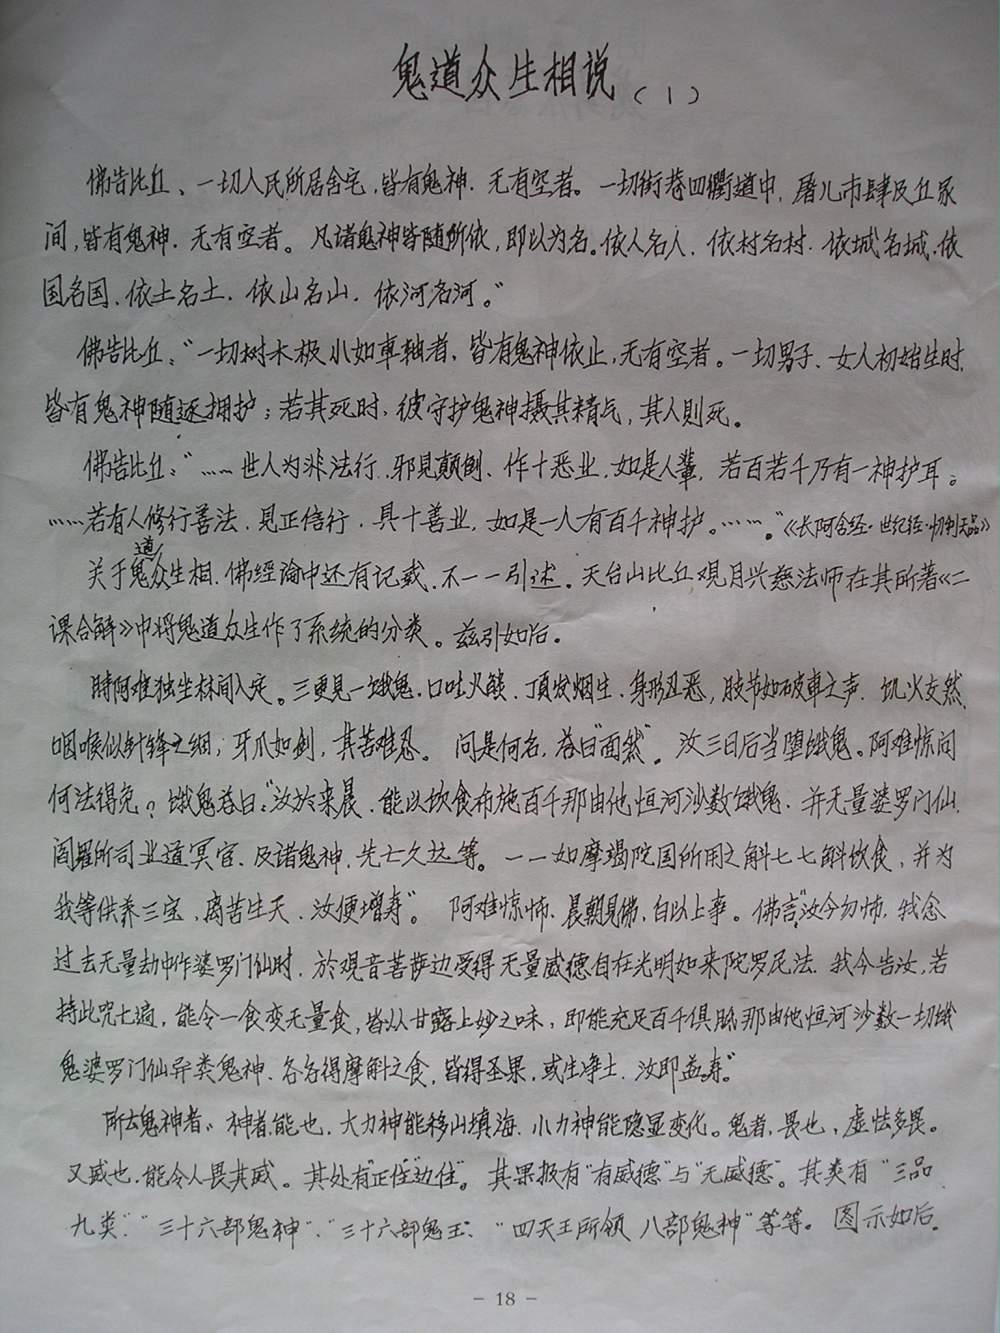 鬼道众生相说（1）
佛告比丘、一切人民所居舍宅，皆有鬼神．无有空者。一切街巷四衢道中，屠儿市肆及丘冢
间，皆有鬼神．无有空者。凡诸鬼神皆随所依，即以为名。依人名人．依村名村．依城名城．依
国名国．依土名土．依山名山．依河名河。”
佛告比丘：“一切树木极小如车轴者．皆有鬼神依止，无有空者。一切男子、女人初始生时，
皆有鬼神随逐拥护；若其死时，彼守护鬼神摄其精气，其人则死。
佛告比丘：“……世人为非法行．邪見颠倒．作十恶业，如是人輩，若百若千乃有一神护耳。
……若有人修行善法．見正信行．具十善业，如是一人有百千神护。……。”《长阿含经·世纪经·忉利天品》
关于鬼道众生相．佛經論中还有记载．不一一引述。天台山比丘观月兴慈法师在其所著《二
课合解》中将鬼道众生作了系统的分类。兹引如后．
時阿难独坐林间入定。三更見一饿鬼．口吐火餤．頂发烟生．身形丑恶，肢节如破車之声．饥火交然．
咽喉似针锋之细；牙爪如剑，其苦难忍。问是何名，答曰“面然”。汝三日后当堕饿鬼。阿难惊问
何法得免？饿鬼答曰：“汝於来晨．能以饮食布施百千那由他恒河沙数饿鬼．并无量婆罗门仙．
阎羅所司业道冥官．及诸鬼神．先亡久远等。一一如摩竭陀国所用之斛七七斛饮食，并为
我等供养三宝，离苦生天．汝便增寿”。阿难惊怖．晨朝見佛，白以上事。佛言“汝今勿怖，我念
过去无量劫中作婆罗门仙时．於观音菩萨边受得无量威德自在光明如来陀罗尼法．我今告汝，若
持此咒七遍，能令一食变无量食，皆以甘露上妙之味，即能充足百千俱胝那由他恒河沙数一切饿
鬼婆罗门仙异类鬼神．各各得摩斛之食，皆得圣果，或生净土．汝即益寿。”
所云鬼神者：神者，能也．大力神能移山填海．小力神能隐显变化。鬼者，畏也，虚怯多畏。
又威也．能令人畏其威。其处有“正住”“边住”。其果报有“有威德”与“无威德”。其类有“三品
九类”“三十六部鬼神”．“三十六部鬼王．“四天王所领八部鬼神”等等。图示如后．
- 18 -